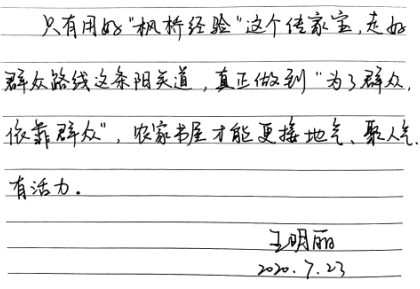 只有用好“枫桥经验”这个传家宝，走好
群众路线这条阳关道，真正做到“为了群众，
依靠群众”，农家书屋才能更接地气、聚人气、
有活力．
王明丽
2020.7.23